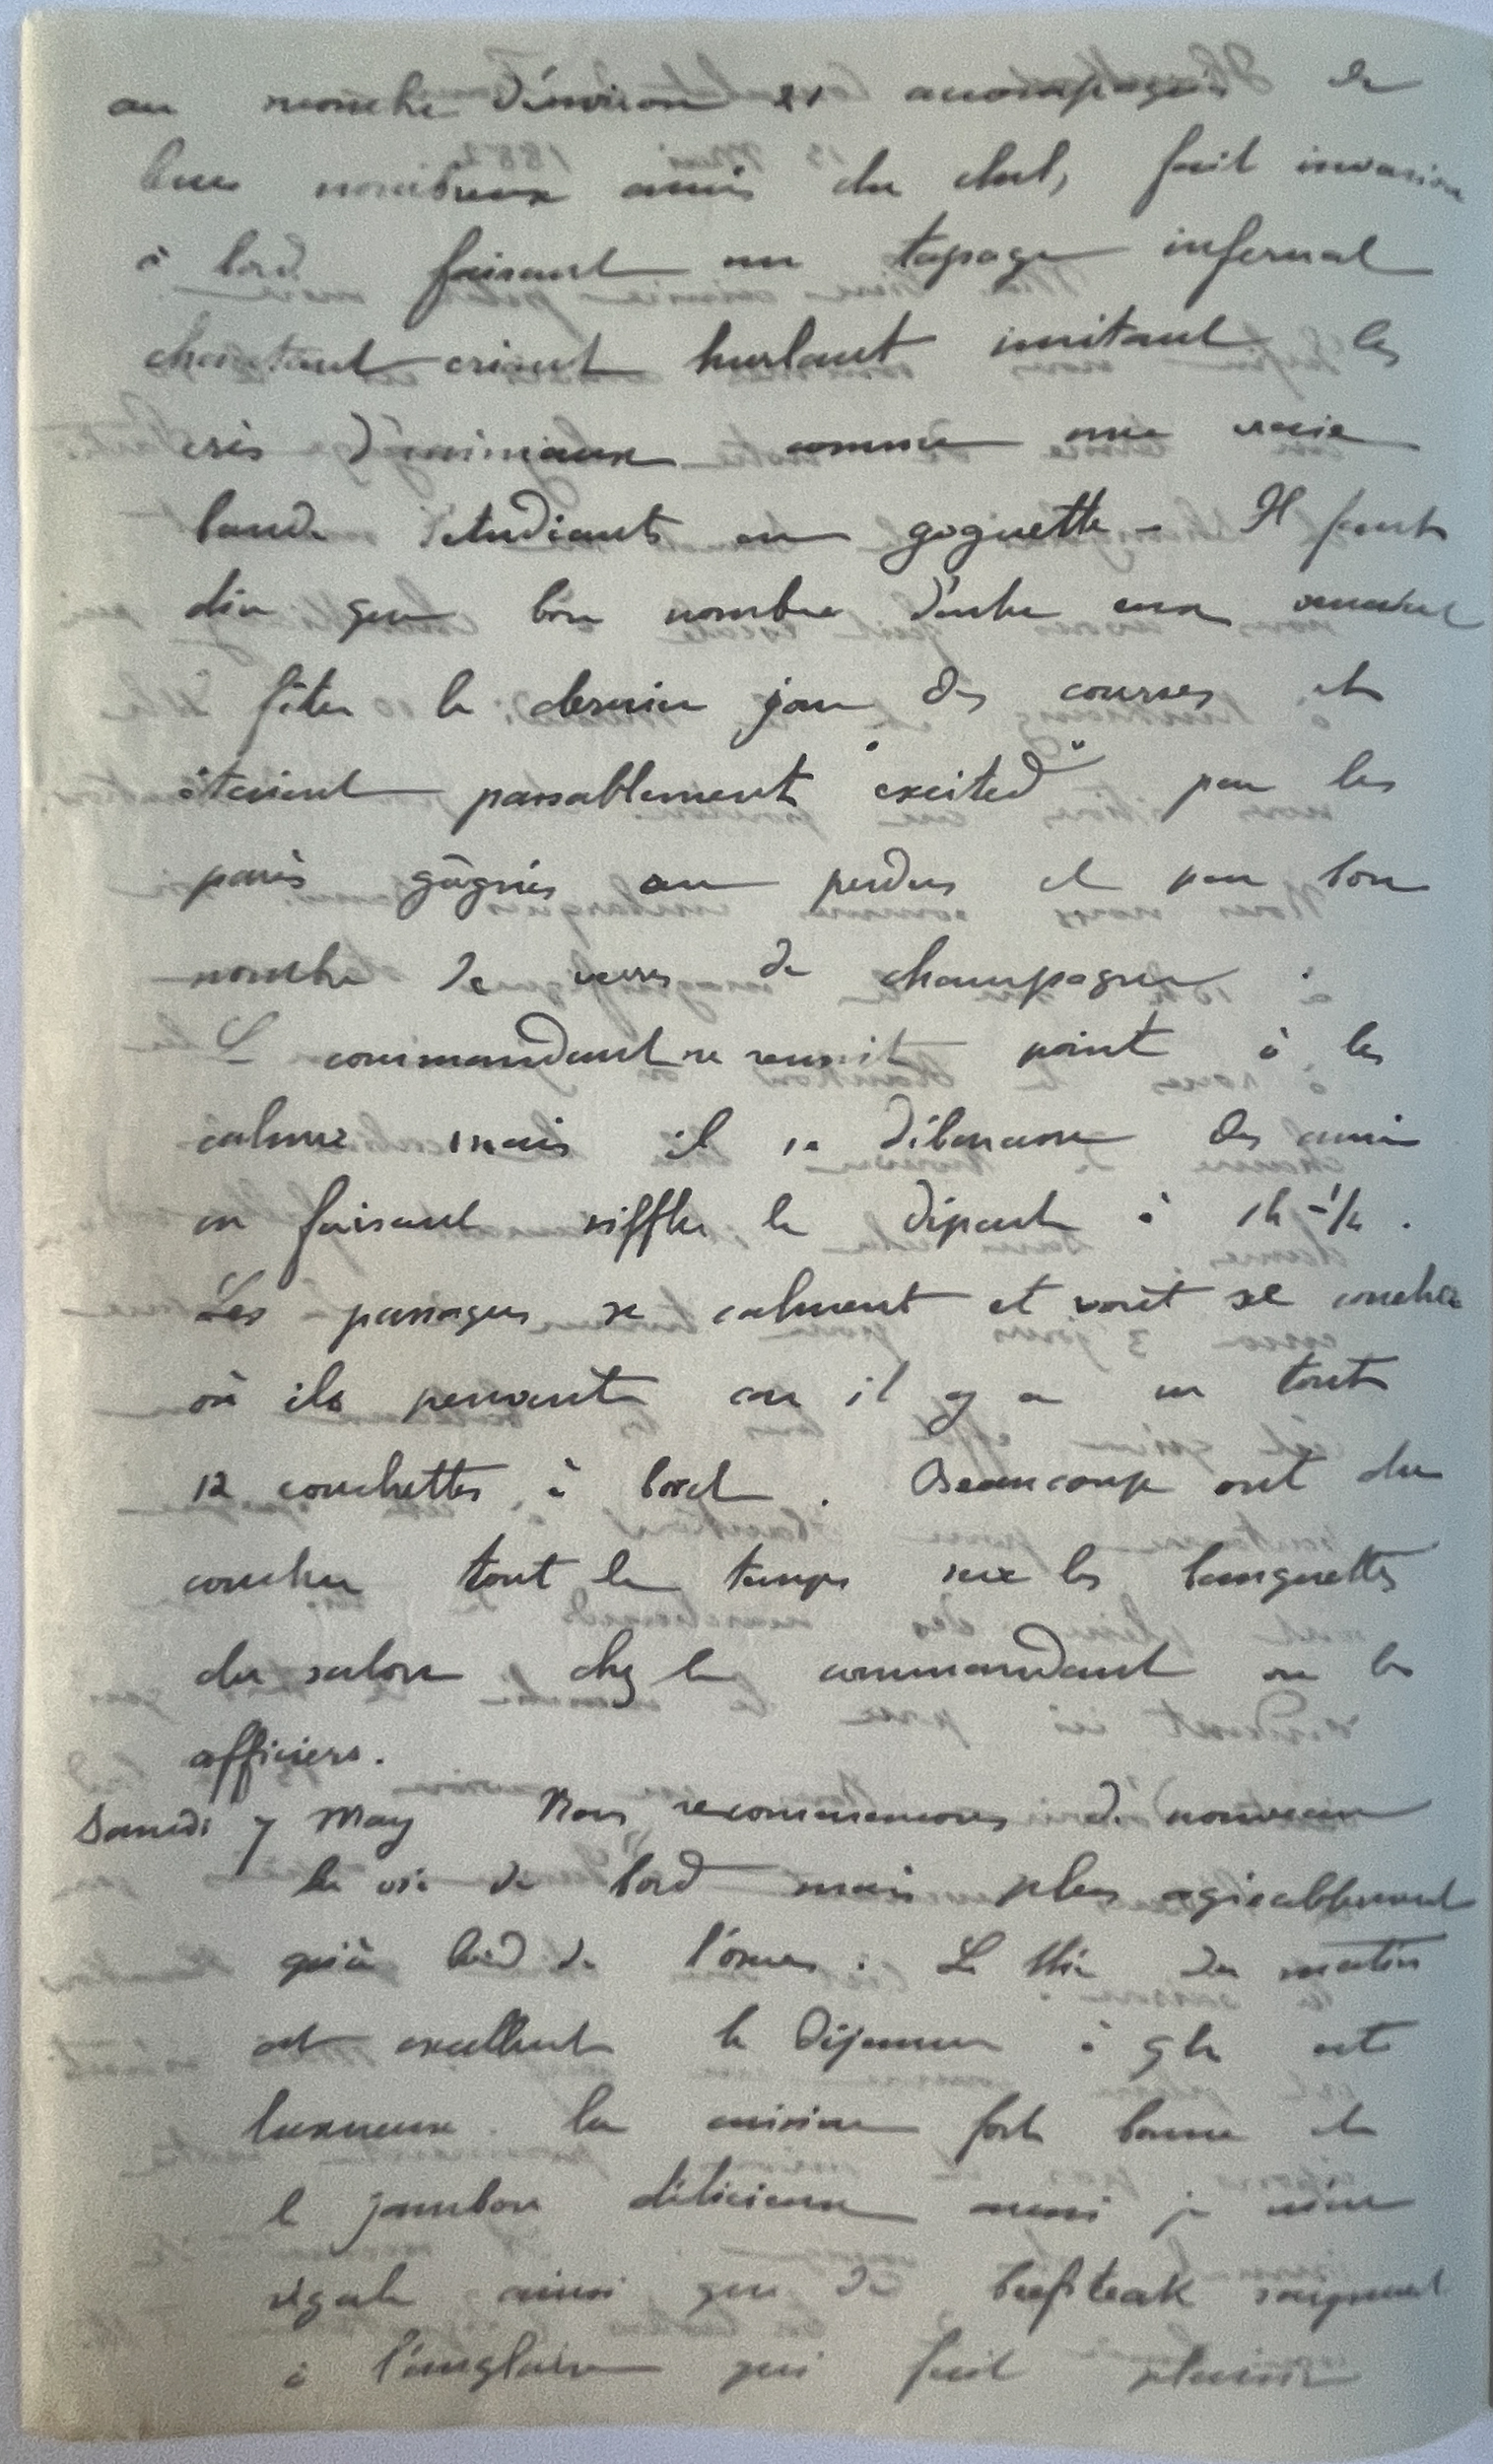 au nombre d'environ 21 accompagnés de
leurs nombreux amis du club, fait invasion
à bord faisant un tapage infernal
chantant criant hurlant imitant les
cris d'animaux comme une vraie
bande d'étudiants en goguette - Il faut
dire que bon nombre d'entre eux venaient
fêter le dernier jour des courses et
étaient passablement "excited" par les
paris gâgnés ou perdus et par bon
nombre de verres de champagne.
Le commandant ne reussit point à les
calmer mais il se débarasse des amis
en faisant siffler le départ à 1h 1/2.
Les passagers se calment et vont se coucher
où ils peuvent car il y a en tout
12 couchettes à bord. Beaucoup ont du
coucher tout le temps sur les banquettes
du salon chez le commandant ou les
officiers.
Samedi 7 May Nous recommencons de nouveau
la vie de bord mais plus agréablement
qu'à bord de l' . Le thé du matin
est excellent le déjeuner à 9h est
luxueux. la cuisine fort bonne et
le jambon délicieux aussi je m'en
régale ainsi que de beefsteak saignant
à l'anglaise qui fait plaisir